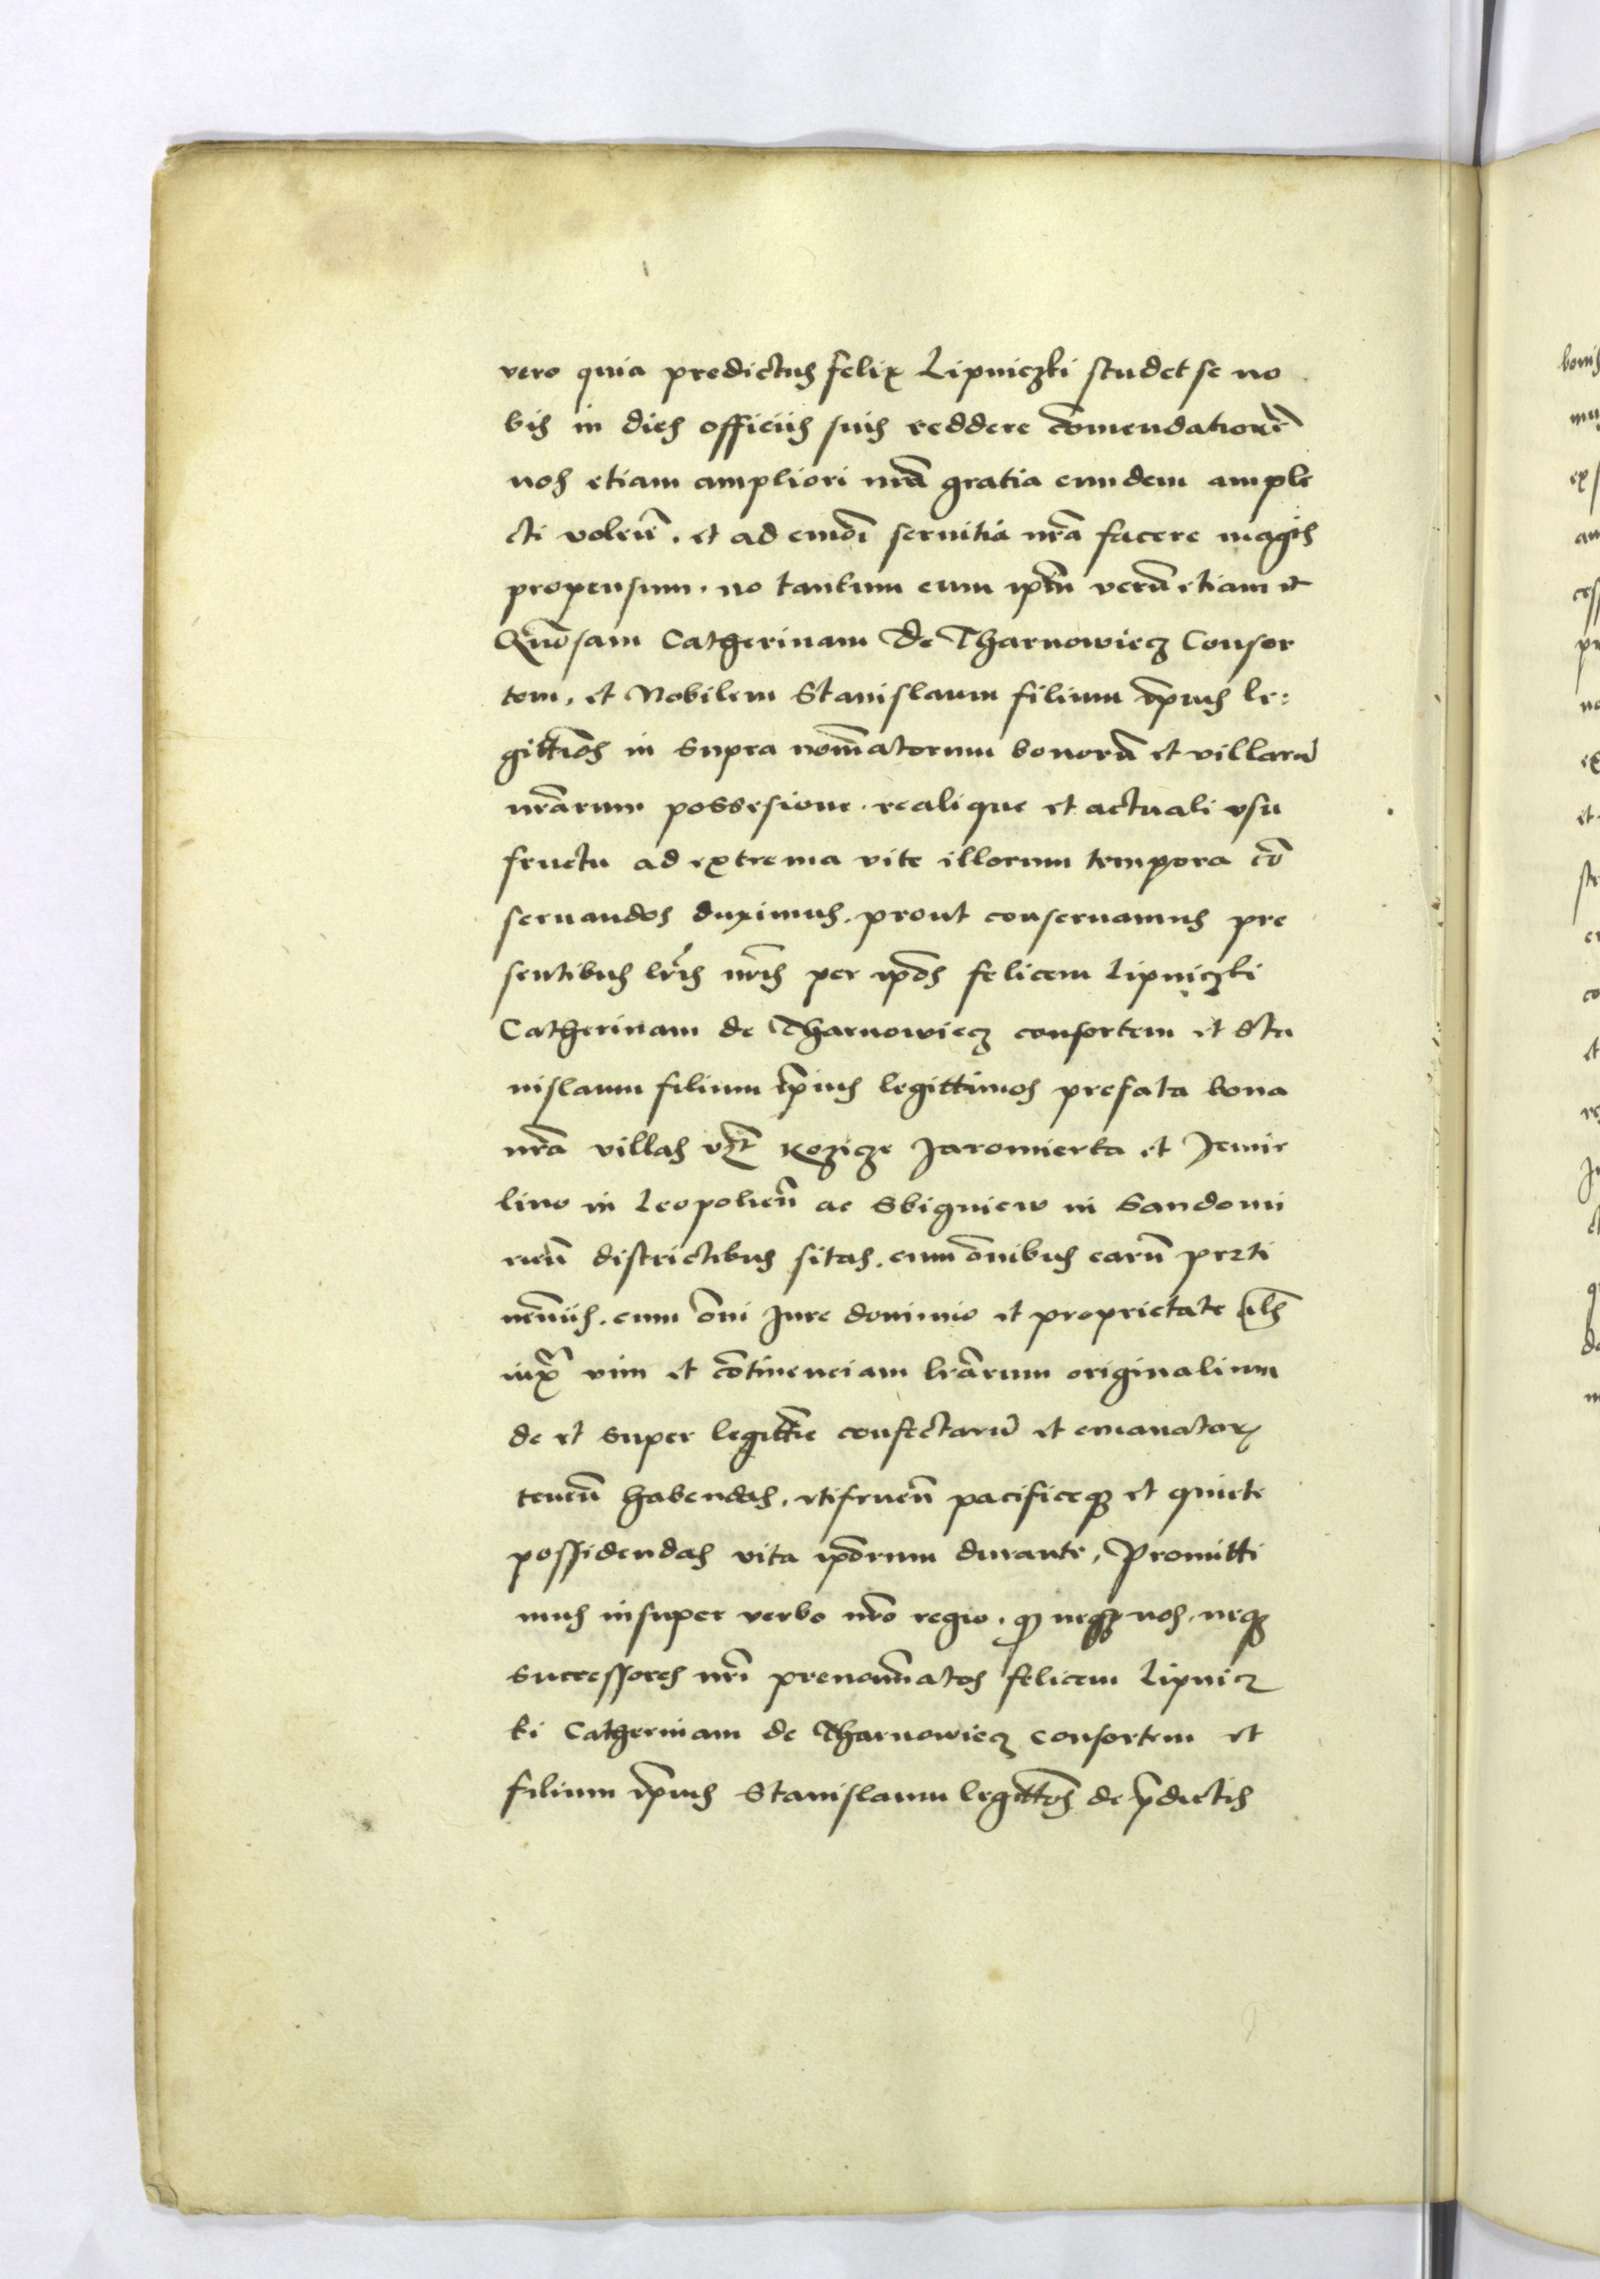 vero quia predictus felix Lipniczki studet se no
bis in dies officiis suis reddere com̄endatiorē
nos etiam ampliori nrā gratia eundem ample
cti volen̄. et ad eundē seruitia nrā facere magis
propensum. no tantum eum ip̄m verū etiam et
Gn̄osam Catherinam de Tharnowiecz Consor
tem, et Nobilem Stanislaum filium ip̄ius le:
gittīos in supra nom̄atorum bonorū et villarū
nrārum possesione. realique et actuali vsu
fructu ad extrema vite illorum tempora cō
seruandos duximus. prout conseruamus pre
sentibus lrīs nrīs per ip̄os felicem Lipniczki
Catherinam de Tharnowiecz consortem et Sta
nislaum filium ip̄ius legittimos prefata bona
nrā villas vz̄t Kozicze Jaromierka et Jemie
lino in Leopolien̄ ac Sbigniew in Sandomi
rien̄ districtibus sitas. cum om̄nibus earū perti
nen̄ciis. cum om̄i Jure dominio et proprietate al̄s
iux̄ vim et cōtinenciam lrārum originalium
de et super legittīe confectarū et emanator
tenen̄ habendas. vtifruen̄ pacificeq et quiete
possidendas vita ip̄orum durante, Promitti
mus insuper verbo nrō regio. q neq nos, neq
successores nrī prenom̄atos felicem Lipnicz
ki Catherinam de Tharnowiecz consortem et
filium ip̄ius Stanislaum legittōs de p̄dictis
boni